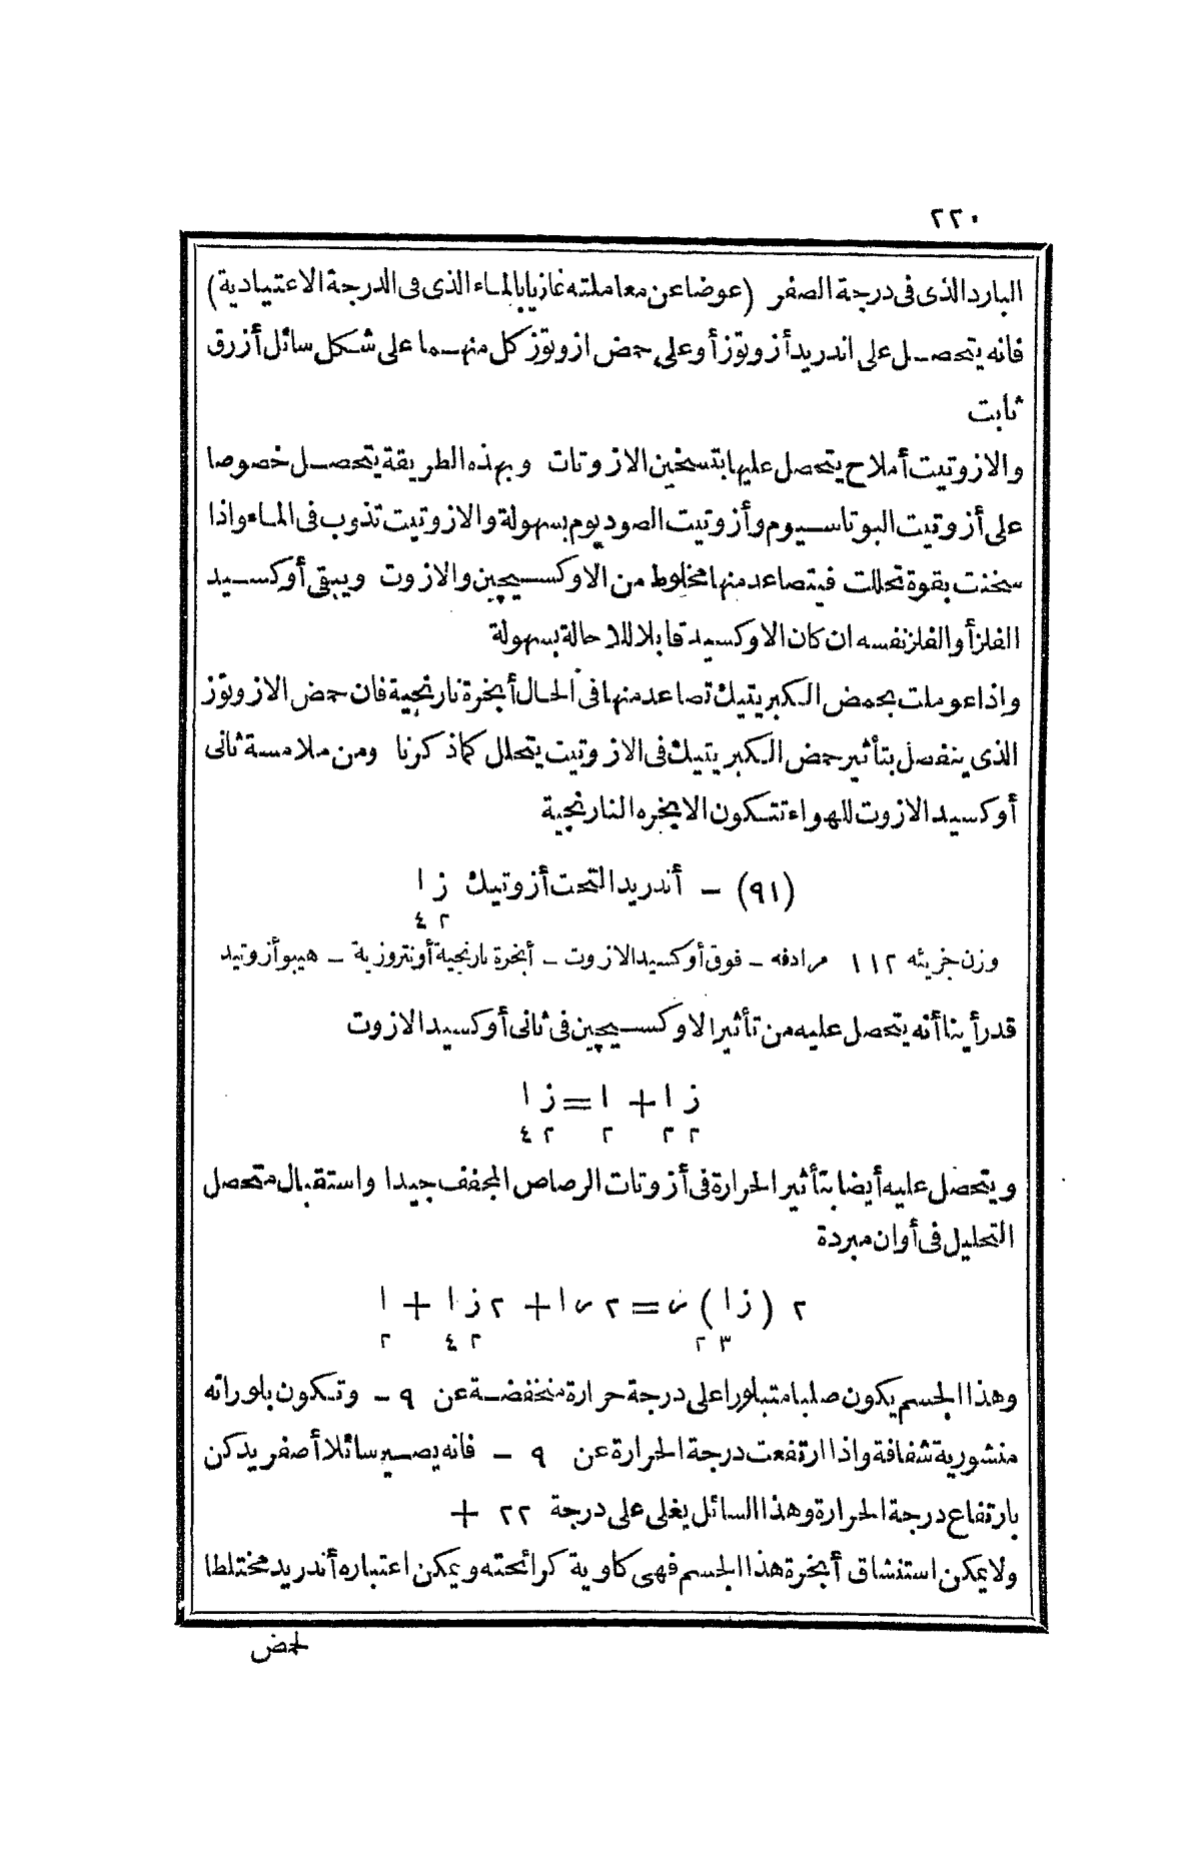 ٢٢٠
البارد الذى فى درجة الصفر (عوضا عن معاملته غازيا بالماء الذى فى الدرجة الاعتيادية)
فانه يتحصل على اندريد أزوتوز أو على حمض ازوتوز كل منهما على شكل سائل أزرق
ثابت
والازوتيت أملاح يتحصل عليها بتسخين الازوتات وبهذه الطريقة يتحصل خصوصا
على أزوتيت البوتاسيوم وأزوتيت الصوديوم بسهولة والازوتيت تذوب فى الماء واذا
سخنت بقوة تحللت فيتصاعد منها مخلوط من الاوكسيچين والازوت ويبقى أوكسيد
الفلز أو الفلز نفسه ان كان الاوكسيد قابلا للاحالة بسهولة
واذا عوملت بحمض الكبريتيك تصاعد منها فى الحال أبخرة نارنجية فان حمض الازوتوز
الذى ينفصل بتأثير حمض الكبريتيك فى الازوتيت يتحلل كما ذكرنا ومن ملامسة ثانى
أوكسيد الازوت للهواء تتكون الابخره النارنجية
(٩١) – أندريد التحت أزوتيك ز ا
٢ ٤
وزن جزيئه ١١٢ مرادفه – فوق أوكسيد الازوت – أبخرة نارنجية أو نتروزية – هيبو أزوتيد
قد رأينا أنه يتحصل عليه من تأثير الاوكسيچين فى ثانى أوكسيد الازوت
ز ا + ا = ز ا
٢ ٢ ٢ ٢ ٤
ويتحصل عليه أيضا بتأثير الحرارة فى أزوتات الرصاص المجفف جيدا واستقبال متحصل
التحليل فى أوان مبردة
٢ (ز ا) ر = ٢ ر ا + ٢ ز ا + ا
٣ ٢ ٢ ٤ ٢
وهذا الجسم يكون صلبا متبلورا على درجة حرارة منخفضة عن ٩ – وتكون بلوراته
منشورية شفافة واذا ارتفعت درجة الحرارة عن ٩ – فانه يصير سائلا أصفر يدكن
بارتفاع درجة الحرارة وهذا السائل يغلى على درجة ٢٢ +
ولا يمكن استنشاق أبخرة هذا الجسم فهى كاوية كرائحته ويمكن اعتباره أندريد مختلطا
لحمض